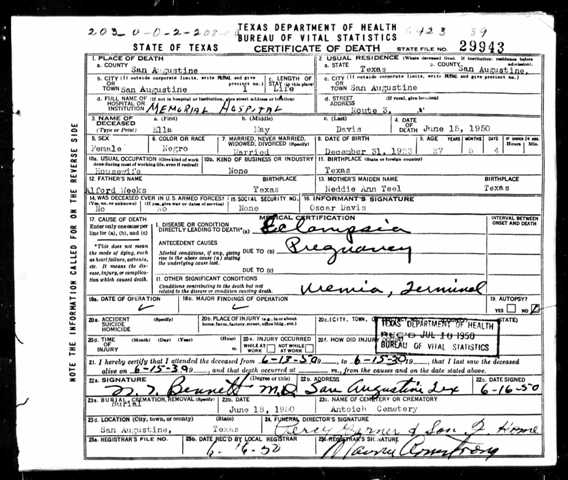 TEXAS DEPARTMENT OF HEALTH
BUREAU OF VITAL STATISTICS
STATE OF TEXAS CERTIFICATE OF DEATH STATE FILE NO. 29943
1. PLACE OF DEATH
a. COUNTY San Augustine
2. USUAL RESIDENCE (Where deceased lived. If institution: residence before admission)
a. STATE Texas b. COUNTY San Augustine,
b. CITY (If outside corporate limits, write RURAL and give precinct no.) OR TOWN San Augustine 1
c. LENGTH OF STAY (in this place) Life
c. CITY (If outside corporate limits, write RURAL and give precinct no.) OR TOWN San Augustine
d. FULL NAME OF HOSPITAL OR INSTITUTION (If not in hospital or institution, give street address or location) MEMORIAL HOSPITAL
d. STREET ADDRESS (If rural, give location) Route 3,
3. NAME OF DECEASED (Type or Print) a. (First) Ella b. (Middle) May c. (Last) Davis
4. DATE OF DEATH June 15, 1950
5. SEX Female
6. COLOR OR RACE Negro
7. MARRIED, NEVER MARRIED, WIDOWED, DIVORCED (Specify) Married
8. DATE OF BIRTH December 31, 1923
9. AGE YEARS MONTHS DAYS
5 4
10a. USUAL OCCUPATION (Give kind of work done during most of working life, even if retired) Housewife
10b. KIND OF BUSINESS OR INDUSTRY None
11. BIRTHPLACE (State or foreign country) Texas
12. FATHER'S NAME Alford Weeks Texas
13. MOTHER'S MAIDEN NAME Neddie Ann Teel Texas
14. WAS DECEASED EVER IN U.S. ARMED FORCES? (If yes, give war or dates of service) No No
15. SOCIAL SECURITY NO. None
16. INFORMANT'S SIGNATURE Oscar Davis
17. CAUSE OF DEATH
Enter only one cause per line for (a), (b), and (c)
MEDICAL CERTIFICATION
INTERVAL BETWEEN ONSET AND DEATH
I. DISEASE OR CONDITION DIRECTLY LEADING TO DEATH* (a) Eclampsia
*This does not mean the mode of dying, such as heart failure, asthenia, etc. It means the disease, injury, or complication which caused death.
ANTECEDENT CAUSES
Morbid conditions, if any, giving rise to the above cause (a) stating the underlying cause last.
DUE TO (b) Pregnancy
DUE TO (c)
II. OTHER SIGNIFICANT CONDITIONS
Conditions contributing to the death but not related to the disease or condition causing death.
Uremia, Terminal
18a. DATE OF OPERATION
18b. MAJOR FINDINGS OF OPERATION
19. AUTOPSY?
YES NO
20a. ACCIDENT SUICIDE HOMICIDE (Specify)
20b. PLACE OF INJURY (e.g., in or about home, farm, factory, street, office bldg., etc.)
20c. (CITY, TOWN, (STATE)
20d. TIME OF INJURY (Month) (Day) (Year) (Hour)
20e. INJURY OCCURRED
WHILE AT WORK NOT WHILE AT WORK
20f. HOW DID INJURY
TEXAS DEPARTMENT OF HEALTH
REC'D JUL 10 1950
BUREAU OF VITAL STATISTICS
21. I hereby certify that I attended the deceased from 6-15-50, 19 to 6-15-50, 19, that I last saw the deceased
alive on 6-15-50, 19, and that death occurred at m., from the causes and on the date stated above.
22a. SIGNATURE (Degree or title) Bennett M.D.
22b. ADDRESS San Augustine Tex
22c. DATE SIGNED 6-16-50
23a. BURIAL, CREMATION, REMOVAL (Specify) Burial
23b. DATE June 18, 1950
23c. NAME OF CEMETERY OR CREMATORY Antioch Cemetery
23d. LOCATION (City, town, or county) (State) San Augustine, Texas
24. FUNERAL DIRECTOR'S SIGNATURE Percy Garner & Son F Home
25a. REGISTRAR'S FILE NO.
25b. DATE REC'D BY LOCAL REGISTRAR 6-16-50
25c. REGISTRAR'S SIGNATURE Armstrong
NOTE THE INFORMATION CALLED FOR ON THE REVERSE SIDE